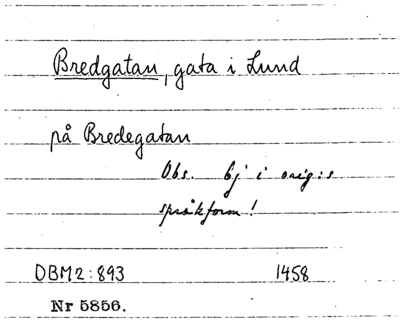 Bredgatan, gata i Lund
på Bredegatan
Obs. Ej i orig:s
språkform!
DBM2:893 1458
Nr 5856.